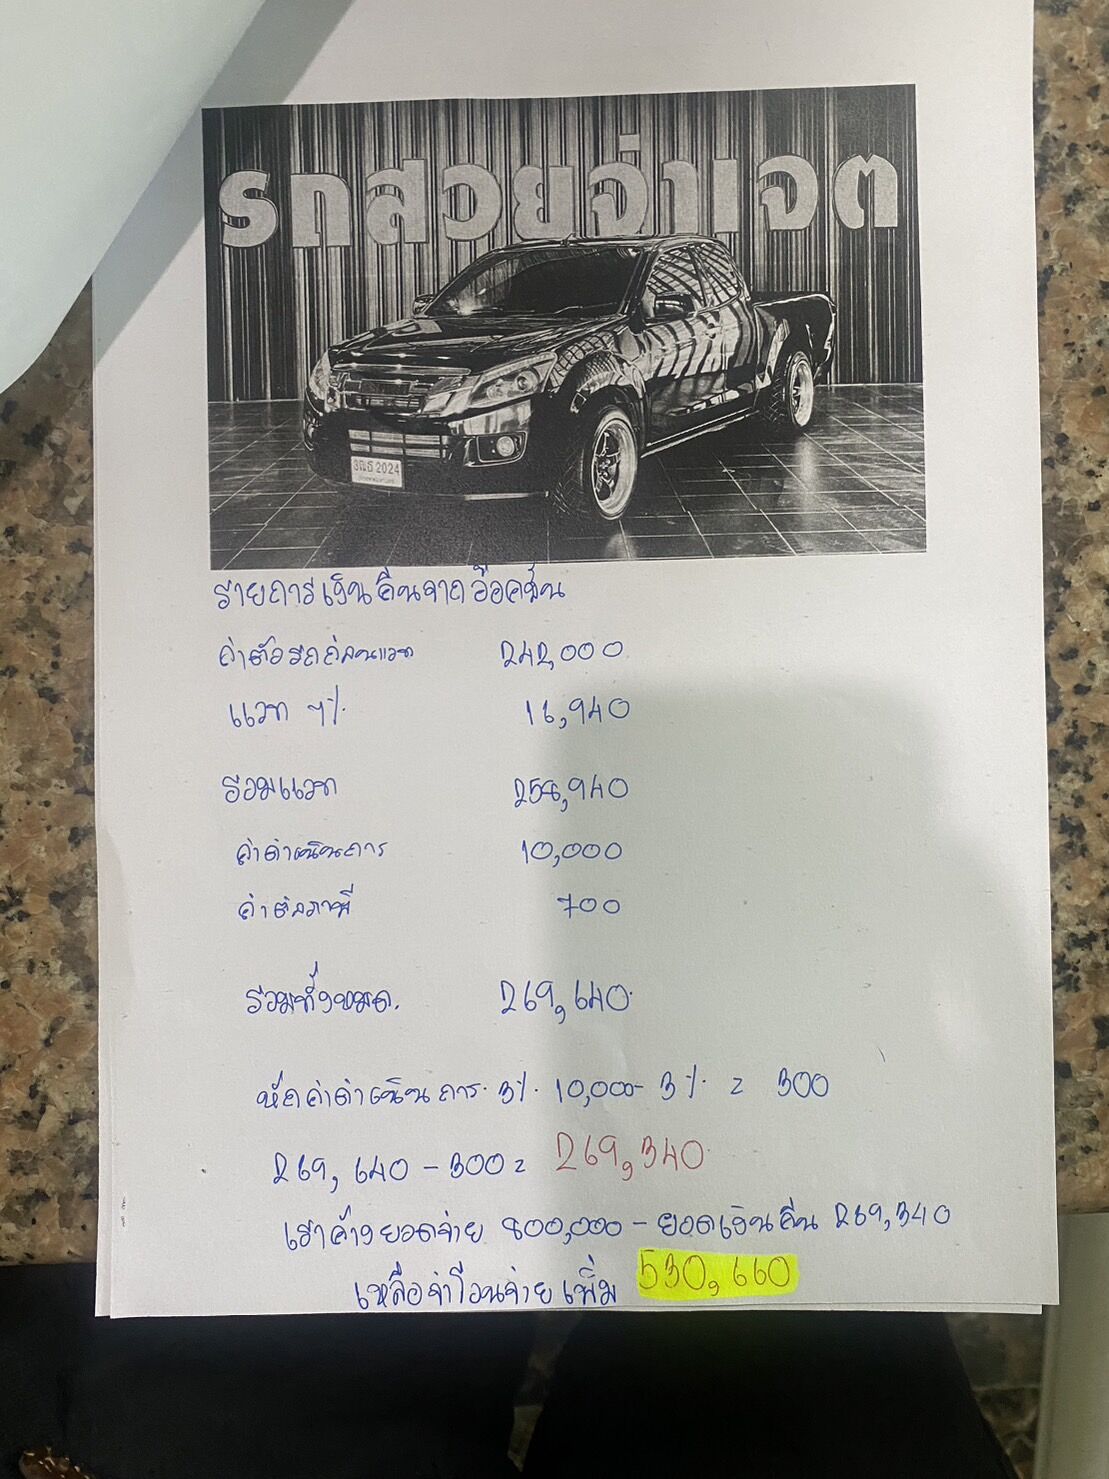 รถสวยจ่าเจต
วิญธ์ 2024
รายการเงินคืนจากอ๊อคชั่น
ค่าตัวรถก่อนแวท 242,000
แวท 7% 16,940
รวมแวท 258,940
ค่าดำเนินการ 10,000
ค่าต่อภาษี 700
รวมทั้งหมด. 269,640
หักค่าดำเนินการ 3% 10,000 - 3% = 300
269,640 - 300 = 269,340
เราค้างยอดจ่าย 800,000 - ยอดเงินคืน 269,340
เหลือจ่าโอนจ่ายเพิ่ม 530,660